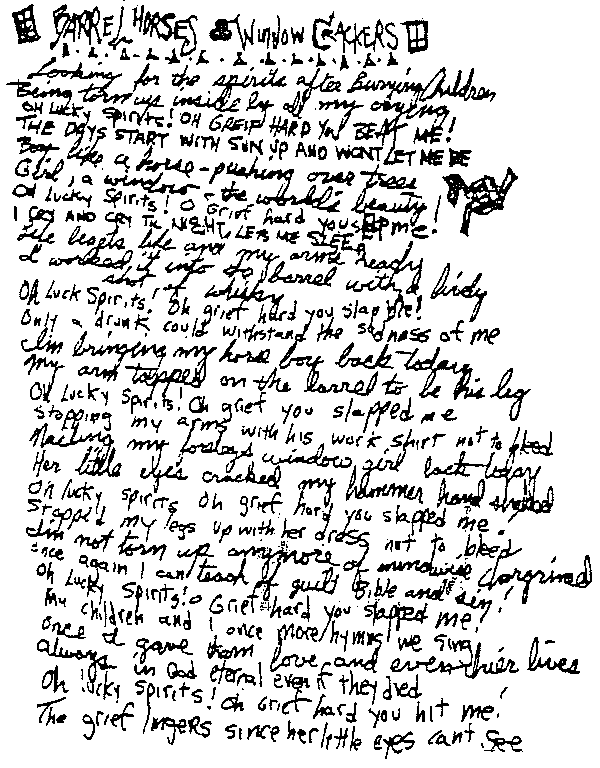 BARREL HORSES & WINDOW CRACKERS
Looking for the spirits after Burying Children
Being torn up inside by all my crying
OH LUCKY SPIRITS! OH GREIF HARD YOU BEAT ME!
THE DAYS START WITH SUN UP AND WONT LET ME BE
Boy like a horse - pushing over trees
Girl, a window - the world's beauty!
Oh Lucky Spirits! O Grief hard you slap me!
I CRY AND CRY THE NIGHT, LETS ME SLEEP
Life begets life and my arms ready
I worked it into barrel with a birdy
shot of whisky
Oh Luck Spirits! Oh grief hard you slap me!
Only a drunk could withstand the sadness of me
I'm bringing my horse boy back today
My arm tapped on the barrel to be his leg
Oh Lucky Spirits! Oh grief you slapped me
Stopping my arms with his work shirt not to bleed
Nailing my window girl back today
Her little eyes cracked my hammer hand
Oh lucky spirits Oh grief hard you slapped me!
Stopped my legs up with her dress not to bleed
I'm not torn up anymore of
once again I can teach of guilt Bible and sin!
Oh Lucky Spirits! O Grief hard you slapped me!
My children and I once more hymns we sing
Once I gave them love and even thier lives
Always in God eternal even if they died
Oh lucky spirits! Oh Grief hard you hit me!
The grief lingers since her little eyes cant see